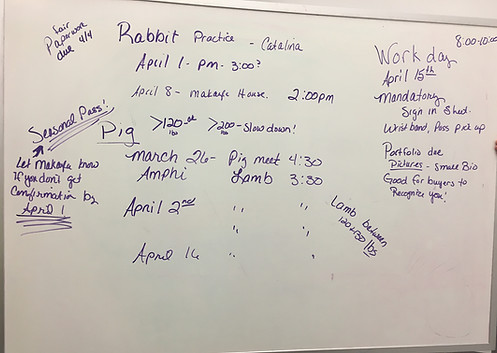 Fair
Paperwork
due 4/4
Rabbit Practice - Catalina
April 1 - pm - 3:00?
April 8 - Makayla House. 2:00pm
Seasonal Pass!
Let Makayla know
If you don't get
Confirmation by
April 1
Pig
>120 lbs >200 lbs - Slow down!
March 26 - Pig meet 4:30
Amphi Lamb 3:30
April 2nd " "
" "
April 16 " "
Lamb between
120 &130 lbs
8:00-10:00
Work day
April 15th
Mandatory
Sign in Sheet.
Wrist band, Pass pick up
Portfolio due
Pictures - Small Bio
Good for buyers to
Recognize you!